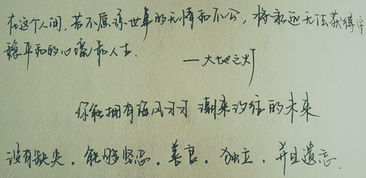 在这个人间，若不原谅世事的无情和不公，将永远无法获得
稳平和的心境和人生
——大地之灯
你能拥有海风习习 潮来汐往的未来
没有缺失，能够坚忍，善良，独立，并且遗忘.